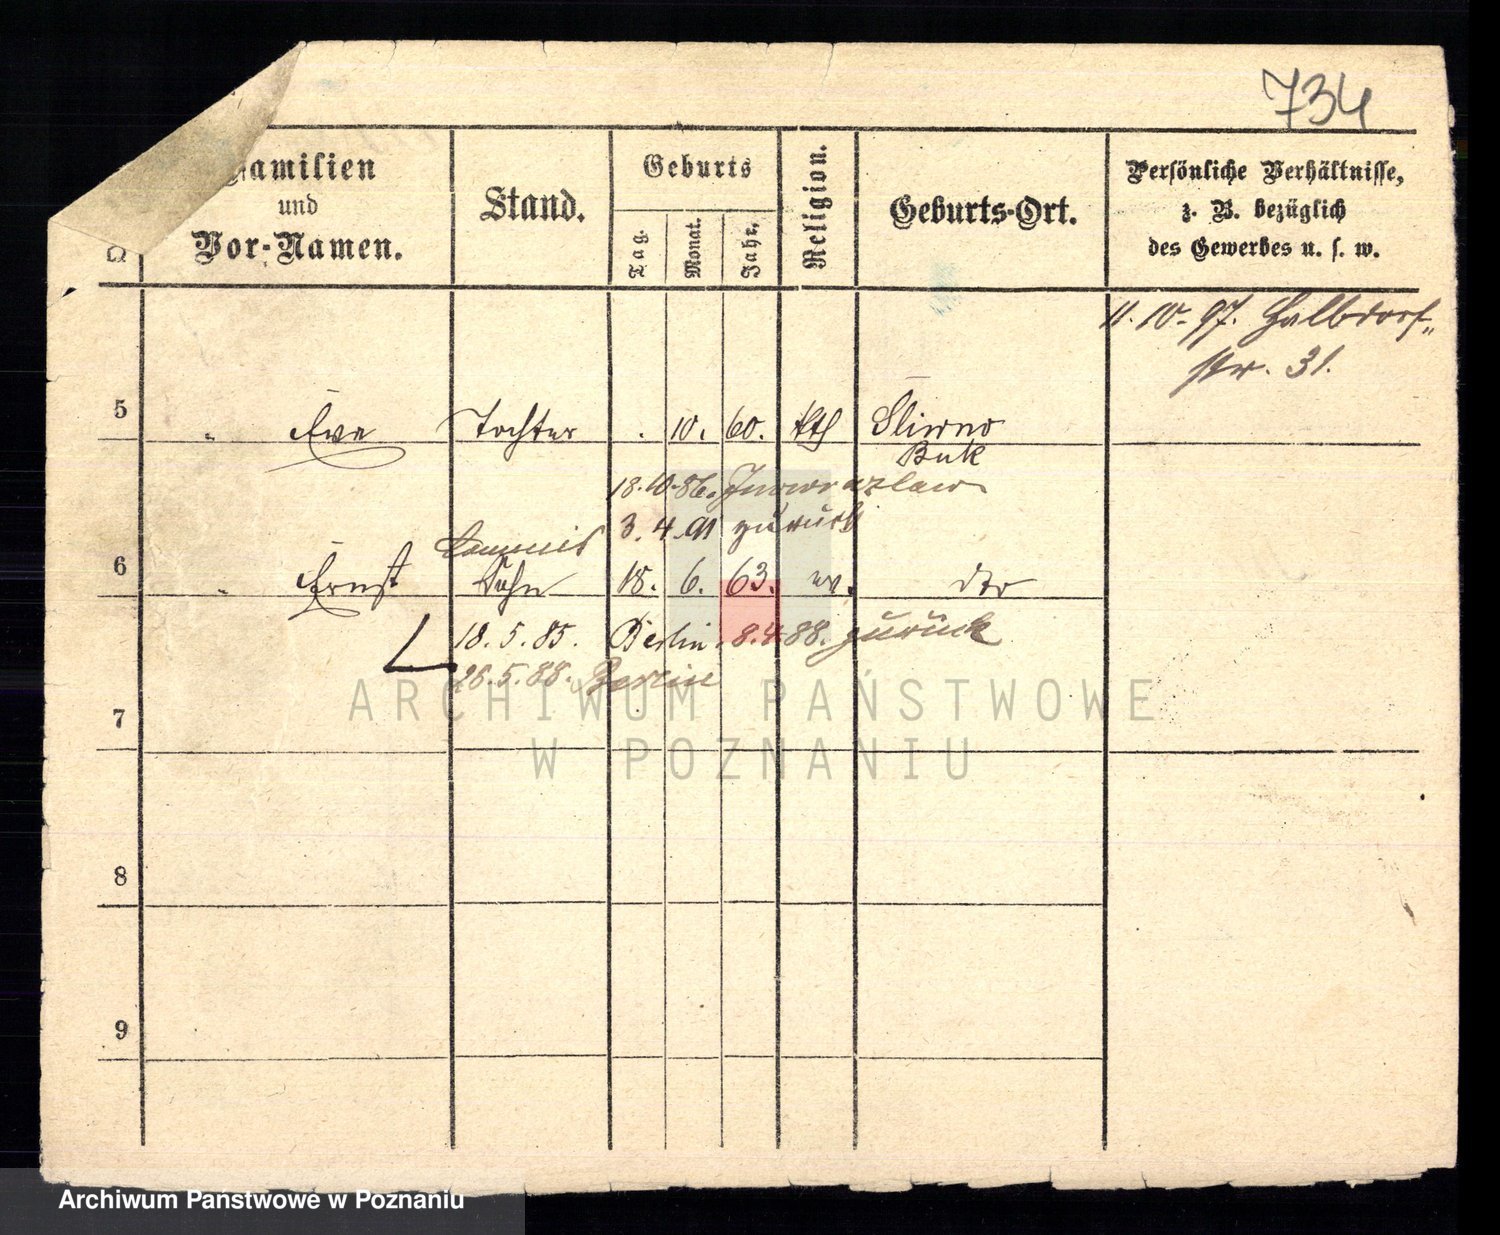 734
Familien
und
Vor-Namen.
Stand.
Geburts
Tag.
Monat.
Jahr.
Religion.
Geburts-Ort.
Persönliche Verhältnisse,
z. B. bezüglich
des Gewerbes u. s. w.
11. 10. 97. Halbdorf-
str. 31.
5 " Eva Tochter . 10. 60. kth Sliwno
Buk
18.10.86. Inowrazlaw
3. 4. 91 zurück
Commis
6 " Ernst Sohn 18. 6. 63. ev. dto
18. 5. 85. Berlin. 8.4.88. zurück
26.5.88. Berlin
7
8
9
ARCHIWUM PAŃSTWOWE
W POZNANIU
Archiwum Państwowe w Poznaniu